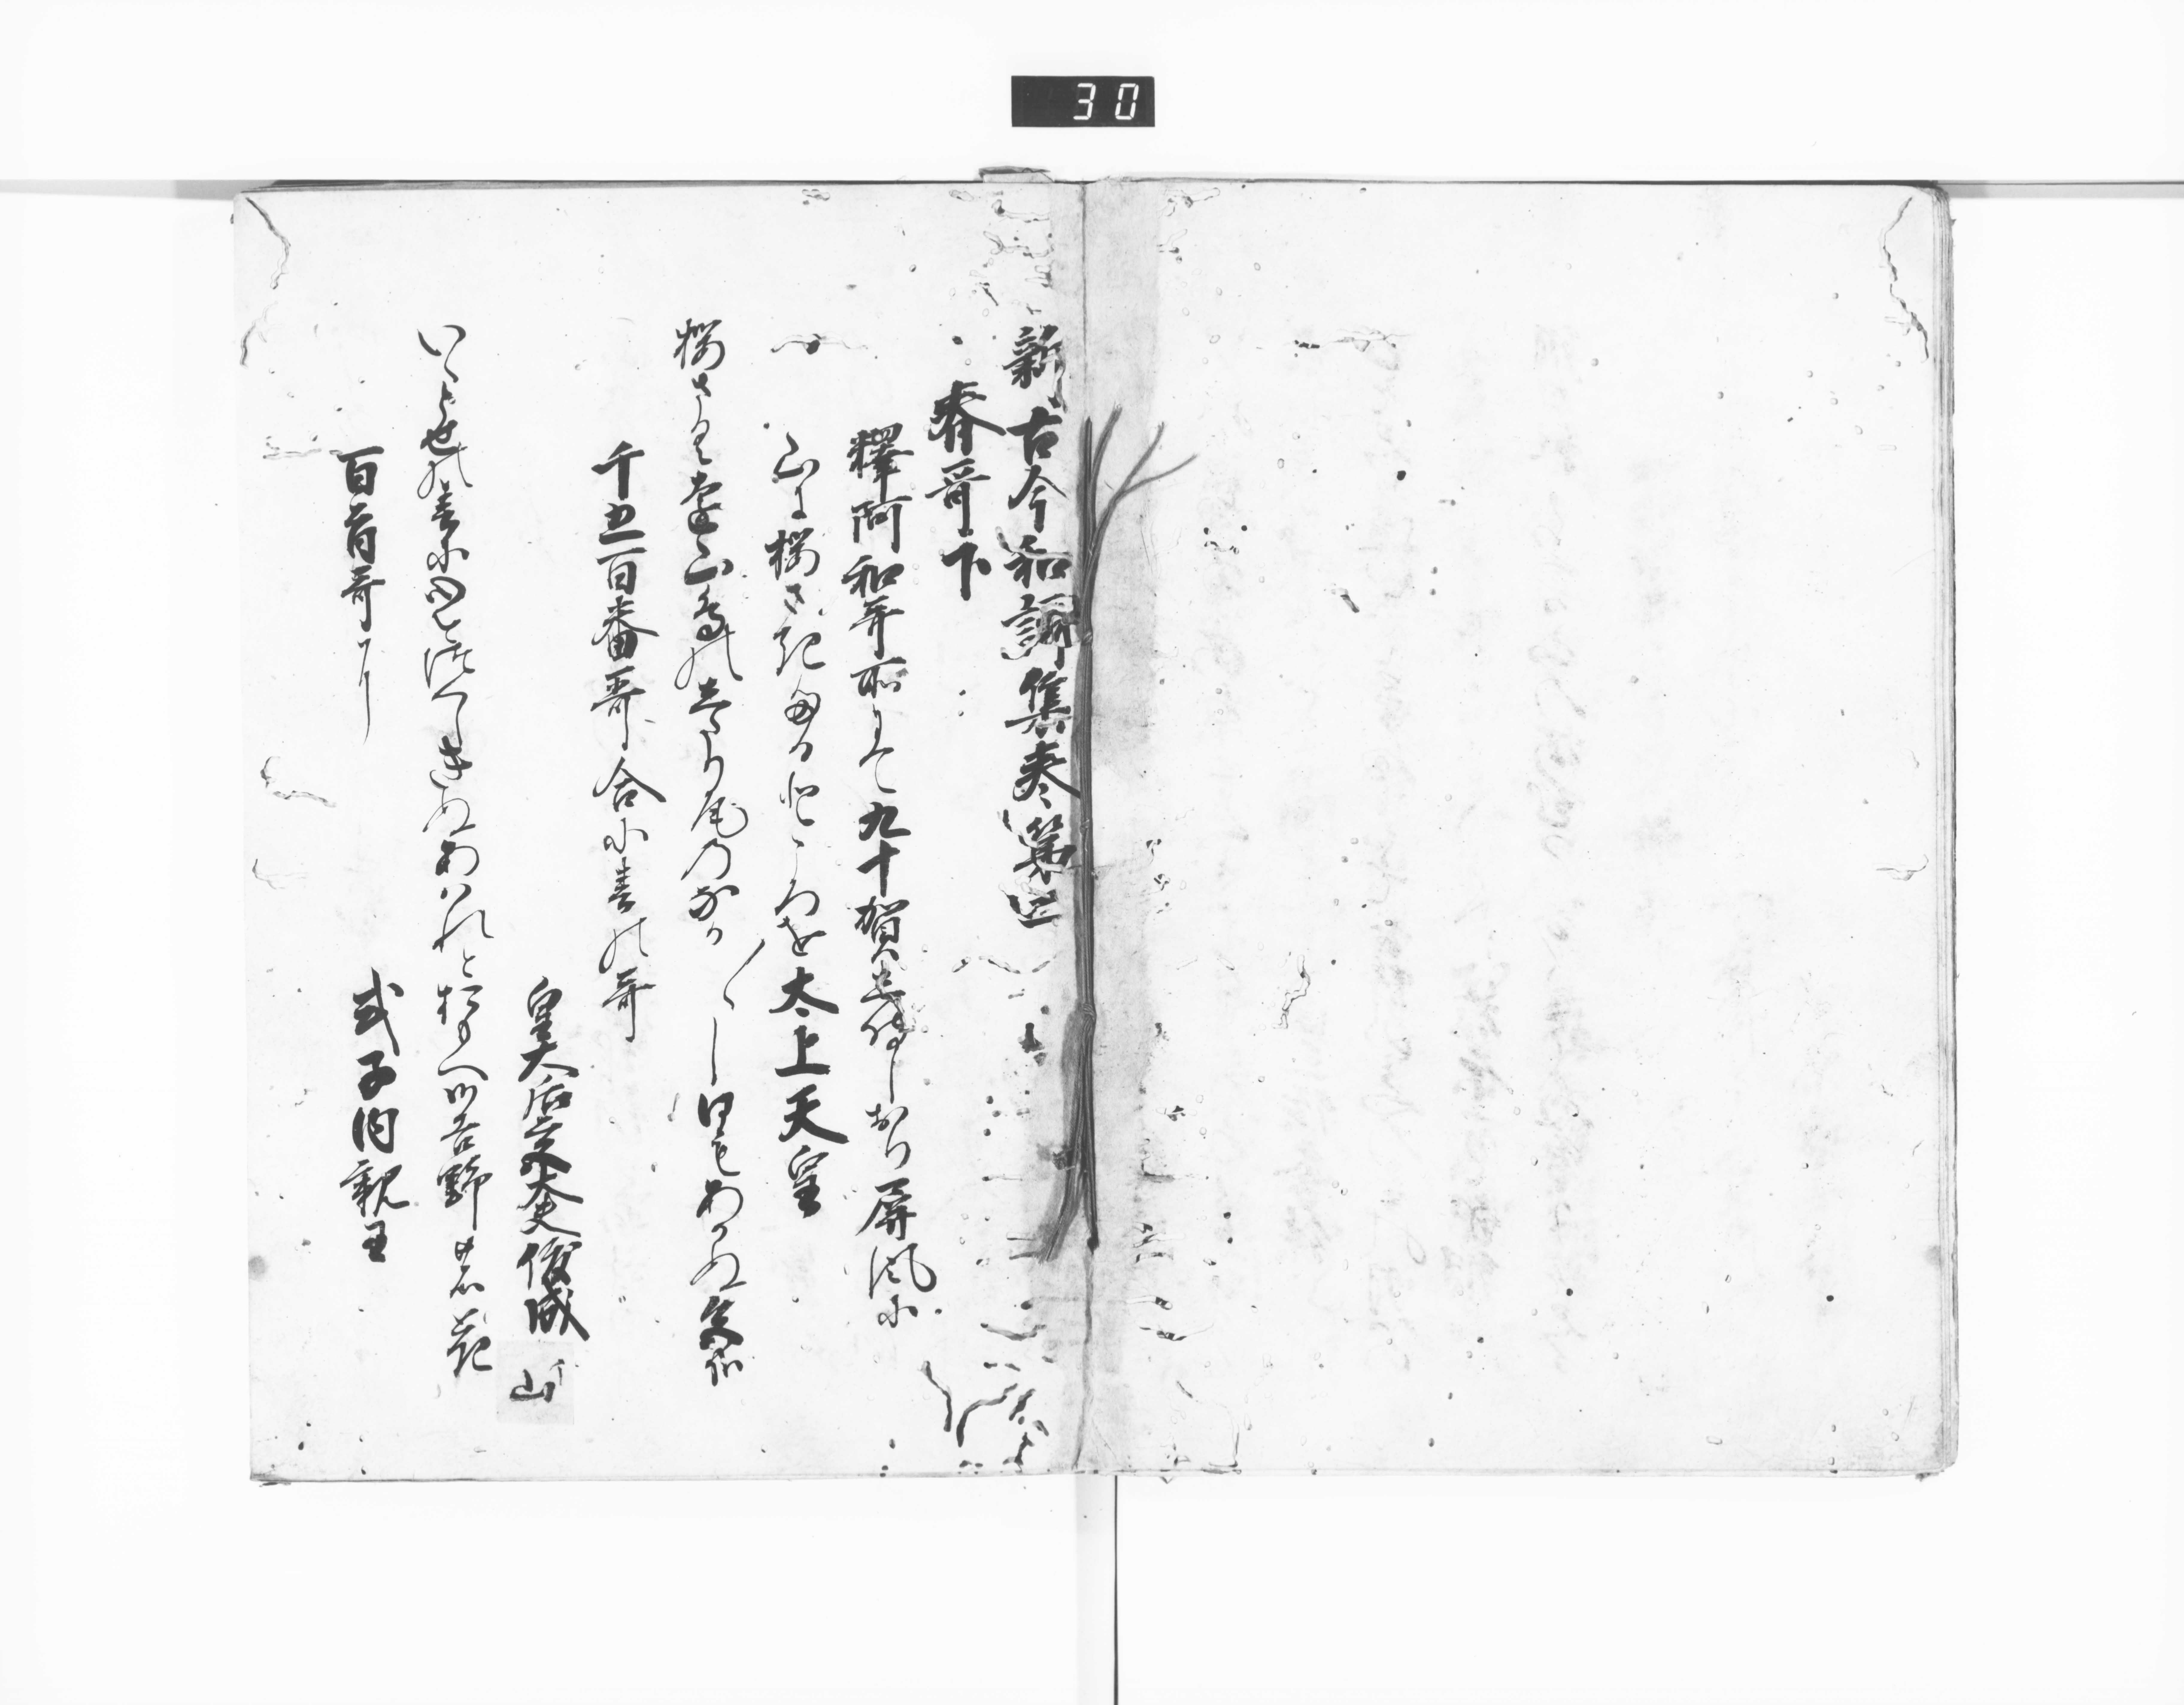 30
新古今和謌集巻第二
春哥下
釋阿和哥所にて九十賀し侍しおり屏風に
山に桜さきたるところを 太上天皇
桜さく遠山鳥のしたり尾のなか〱し日もあかぬ色哉
千五百番哥合に春の哥
皇太后宮大夫俊成
いくとせの春に心をつくしきぬあはれと思へみ吉野の花
百首哥に
式子内親王